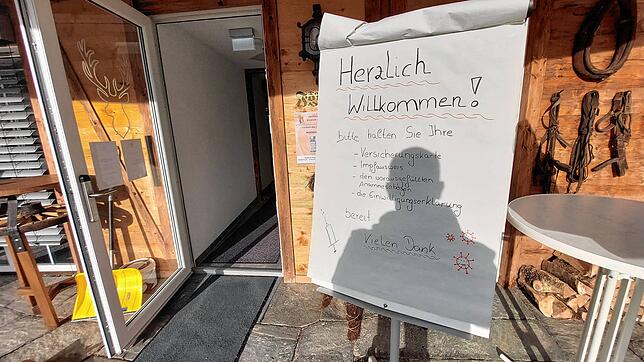 Herzlich
Willkommen!
bitte halten Sie Ihre
- Versicherungskarte
- Impfausweis
- den vorausgefüllten
Anamnesebogen
- die Einwilligungserklärung
bereit
Vielen Dank